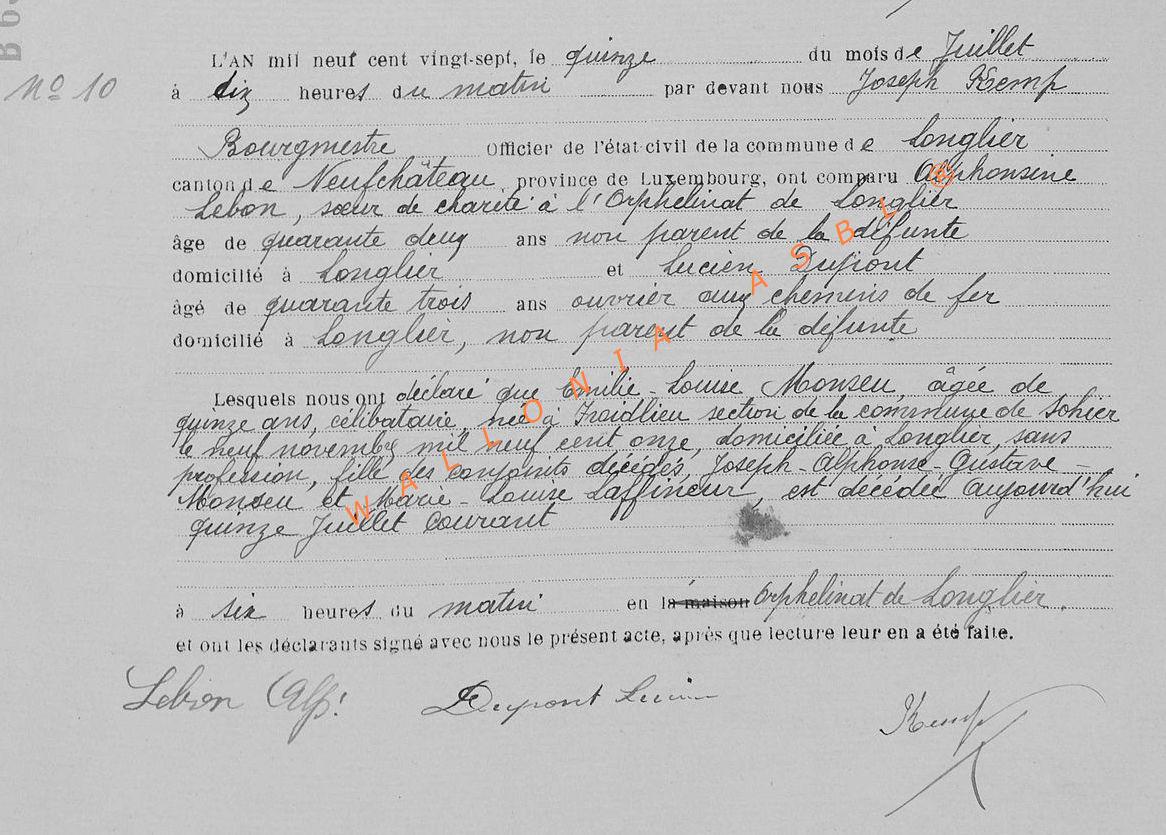 B 6
L'AN mil neuf cent vingt-sept, le quinze du mois de Juillet
Nº 10
à dix heures du matin par devant nous Joseph Kemp
Bourgmestre Officier de l'état civil de la commune de Longlier
canton de Neufchâteau, province de Luxembourg, ont comparu Alphonsine
Lebon, sœur de charité à l'Orphelinat de Longlier
âge de quarante deux ans non parent de la défunte
domicilié à Longlier et Lucien Dupont
âgé de quarante trois ans ouvrier aux chemins de fer
domicilié à Longlier, non parent de la défunte
Lesquels nous ont déclaré que Emilie-Louise Monseu, âgée de
quinze ans, célibataire, née à Froidlieu section de la commune de Sohier
le neuf novembre mil neuf cent onze, domiciliée à Longlier, sans
profession, fille des conjoints décédés, Joseph-Alphonse-Gustave-
Monseu et Marie-Louise Laffineur, est décédée aujourd'hui
quinze Juillet courant
à six heures du matin en la maison Orphelinat de Longlier.
et ont les déclarants signé avec nous le présent acte, après que lecture leur en a été faite.
Lebon Alp: Dupont Lucien Kemp
WALLONIA ASBL ®